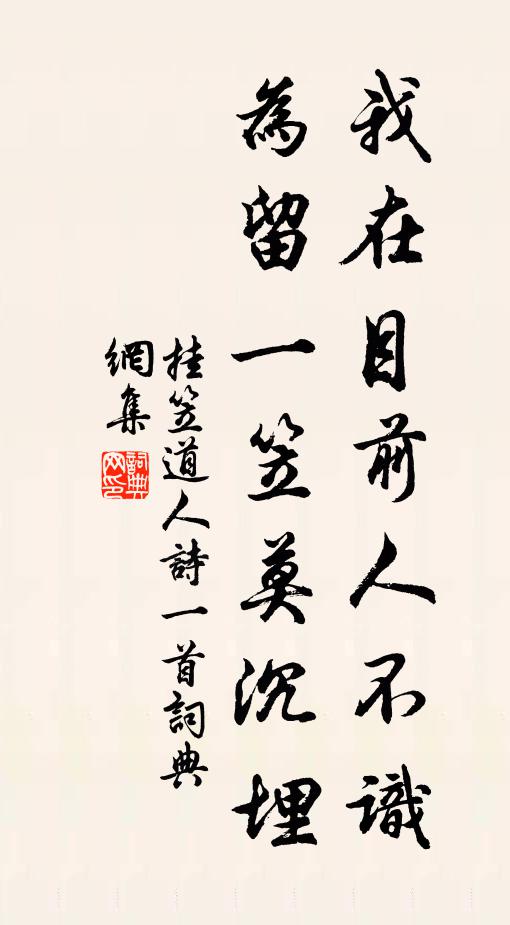 我在目前人不識
為留一笠莫沉埋
挂笠道人詩一首詞典
網集
詞典網印